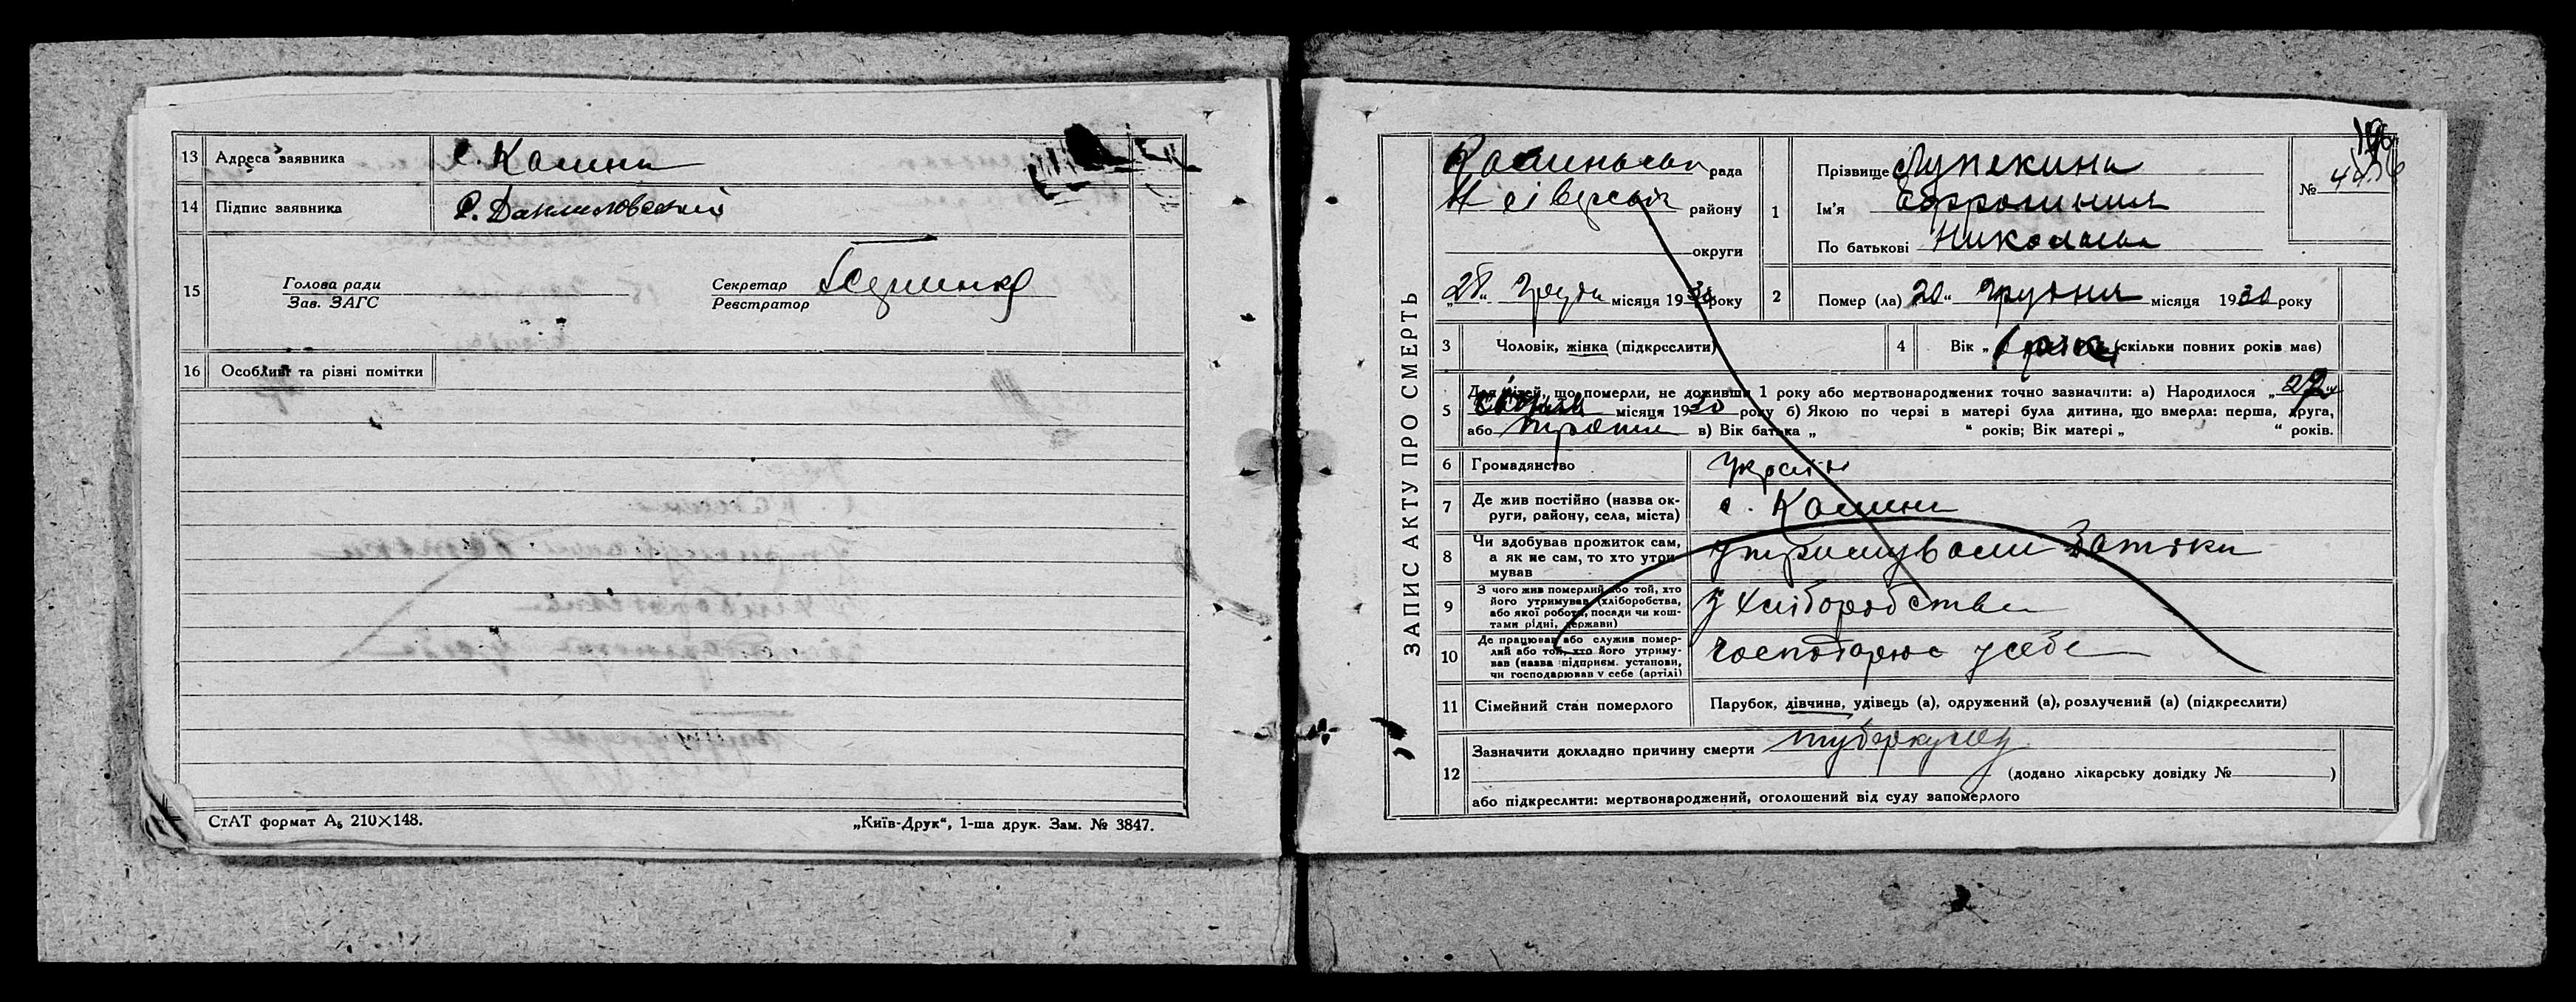 13 Адреса заявника с. Калини
14 Підпис заявника С. Данилювский
15 Голова ради
Зав. ЗАГС
Секретар
Реєстратор
16 Особливі та різні помітки
СтАТ формат А₅ 210×148.
„Київ-Друк“, 1-ша друк. Зам. № 3847.
ЗАПИС АКТУ ПРО СМЕРТЬ
рада
району
округи
„28“ Грудн місяця 1930 року
1 Прізвище
Ім'я Єфросиния
По батькові Николаева
№ 44
2 Помер (ла) 20“ грудня місяця 1930 року
3 Чоловік, жінка (підкреслити)
4 Вік „ (скільки повних років має)
5 Для дітей, що померли, не доживши 1 року або мертвонароджених точно зазначити: а) Народилося „27“
місяця 1930 року б) Якою по черзі в матері була дитина, що вмерла: перша, друга,
або третя в) Вік батька „ “ років; Вік матері „ “ років.
6 Громадянство Україн
7 Де жив постійно (назва ок-
руги, району, села, міста) с. Калини
8 Чи здобував прожиток сам,
а як не сам, то хто утри-
мував утримували Батьки
9 З чого жив померлий або той, хто
його утримував (хліборобства,
або якої роботи, посади чи кош-
тами рідні, держави) З Хліборобства
10 Де працював або служив помер-
лий або той, хто його утриму-
вав (назва підприєм. установи,
чи господарював у себе (артілі) господарює у себе
11 Сімейний стан померлого Парубок, дівчина, удівець (а), одружений (а), розлучений (а) (підкреслити)
12 Зазначити докладно причину смерти туберкульоз
(додано лікарську довідку № )
або підкреслити: мертвонароджений, оголошений від суду запомерлого